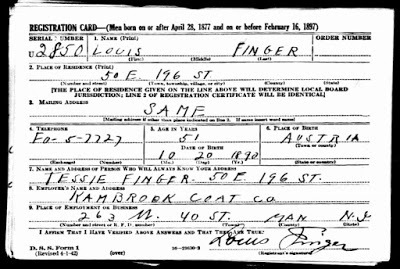 REGISTRATION CARD—(Men born on or after April 28, 1877 and on or before February 16, 1897)
SERIAL NUMBER 1. NAME (Print) ORDER NUMBER
U 2850 LOUIS FINGER
(First) (Middle) (Last)
2. PLACE OF RESIDENCE (Print)
50 E. 196 ST.
(Number and street) (Town, township, village, or city) (County) (State)
[THE PLACE OF RESIDENCE GIVEN ON THE LINE ABOVE WILL DETERMINE LOCAL BOARD
JURISDICTION; LINE 2 OF REGISTRATION CERTIFICATE WILL BE IDENTICAL]
3. MAILING ADDRESS
SAME
[Mailing address if other than place indicated on line 2. If same insert word same]
4. TELEPHONE 5. AGE IN YEARS 6. PLACE OF BIRTH
FO-5-7727 51 AUSTRIA
DATE OF BIRTH (Town or county)
10 20 1890
(Exchange) (Number) (Mo.) (Day) (Yr.) (State or country)
7. NAME AND ADDRESS OF PERSON WHO WILL ALWAYS KNOW YOUR ADDRESS
TESSIE FINGER 50 E. 196 ST.
8. EMPLOYER'S NAME AND ADDRESS
KAMBROOK COAT CO
9. PLACE OF EMPLOYMENT OR BUSINESS
263 W. 40 ST. MAN N.Y
(Number and street or R. F. D. number) (Town) (County) (State)
I AFFIRM THAT I HAVE VERIFIED ABOVE ANSWERS AND THAT THEY ARE TRUE.
D. S. S. Form 1 Louis Finger
(Revised 4-1-42) (over)